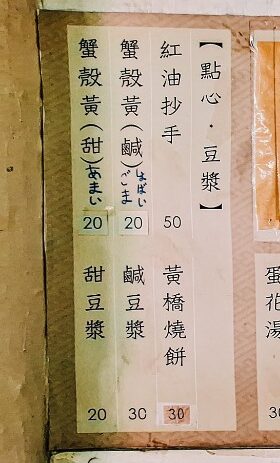 【點心・豆漿】
紅油抄手 50
黃橋燒餅 30
蟹殼黃(鹹)ごま しょぱい 20
鹹豆漿 30
蟹殼黃(甜)あまい 20
甜豆漿 20
蛋花湯 30